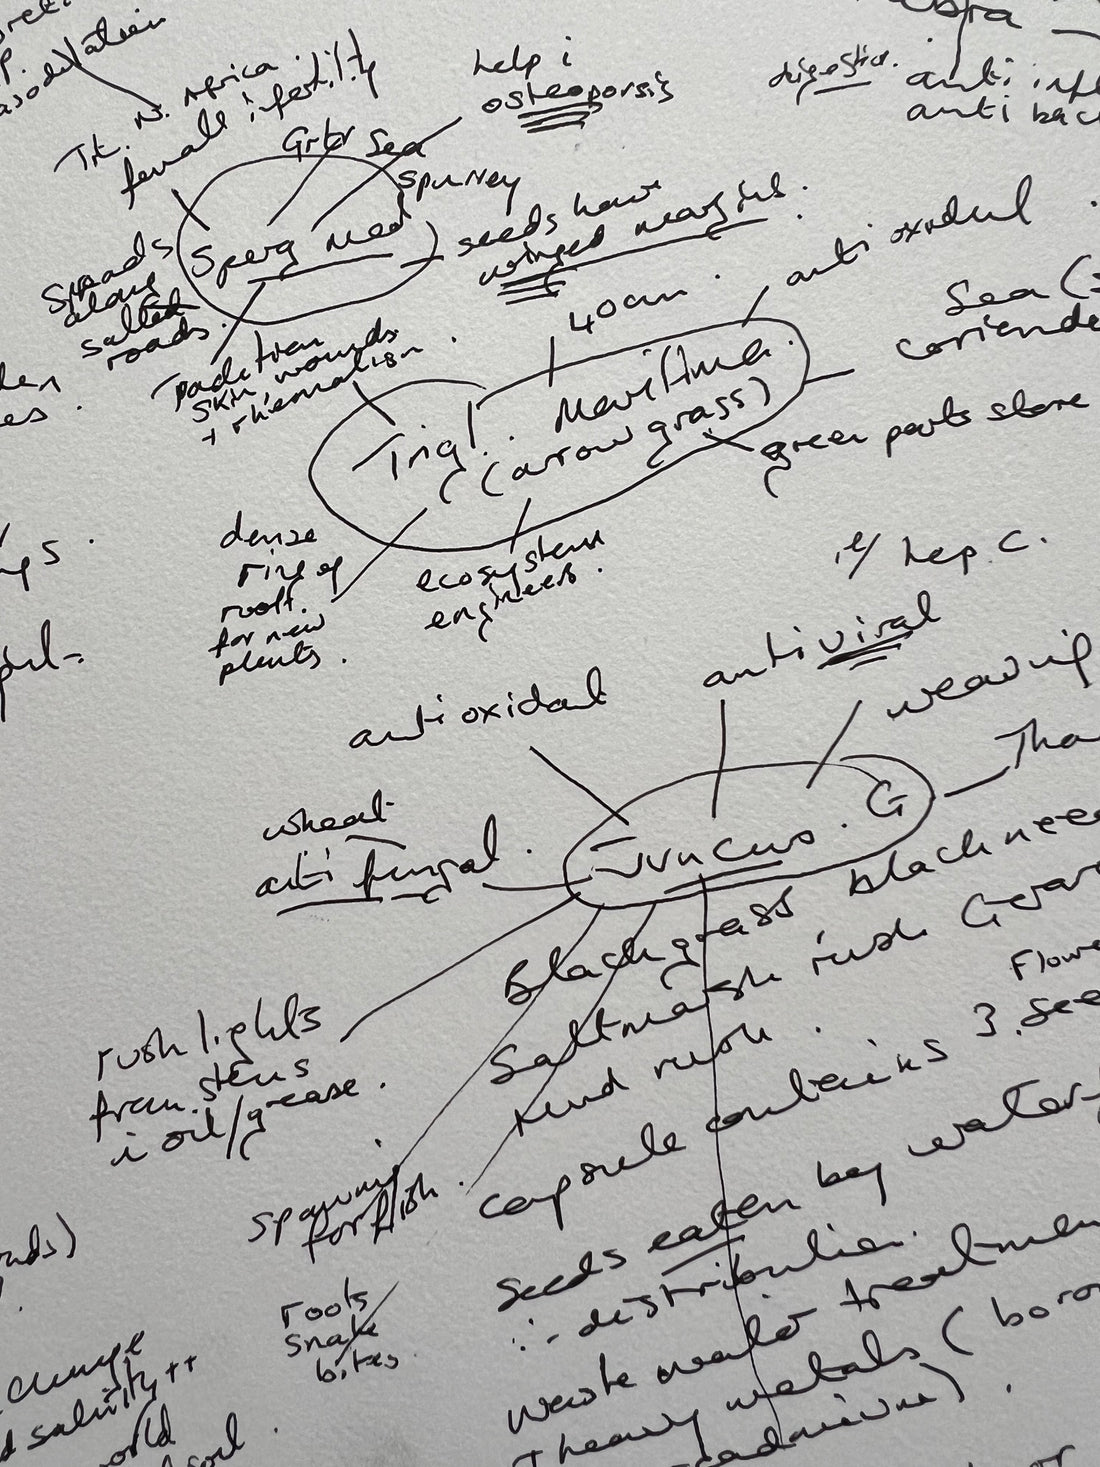 help i
osteoporsis
digestion.
anti
anti bac
Trt. N. Africa.
female infertility
Grtr Sea
Spurrey
Sperg Med
seeds have
winged margins.
Spreads
along
salted
roads.
Tradition
skin, wounds
+ rheumatism.
40cm.
antioxidant
Sea
coriende
Trigl. Maritima.
(arrow grass)
green parts store
dense
ring of
root.
for new
plants.
ecosystem
engineers.
hep. C.
antiviral
weaving
antioxidant
wheat
anti fungal.
Juncus. G
Blackgrass black nee
Saltmarsh rush Gerar
Mud rush.
Flowe
capsule contains 3. see
rush lights
from stems
i oil/grease.
spawning
for fish.
Seeds eaten by water
∴ distribution.
roots
snake
bites.
Waste water treatmen
+ heavy metals (boro
cadmium).
change
salinity ++
world
soil.